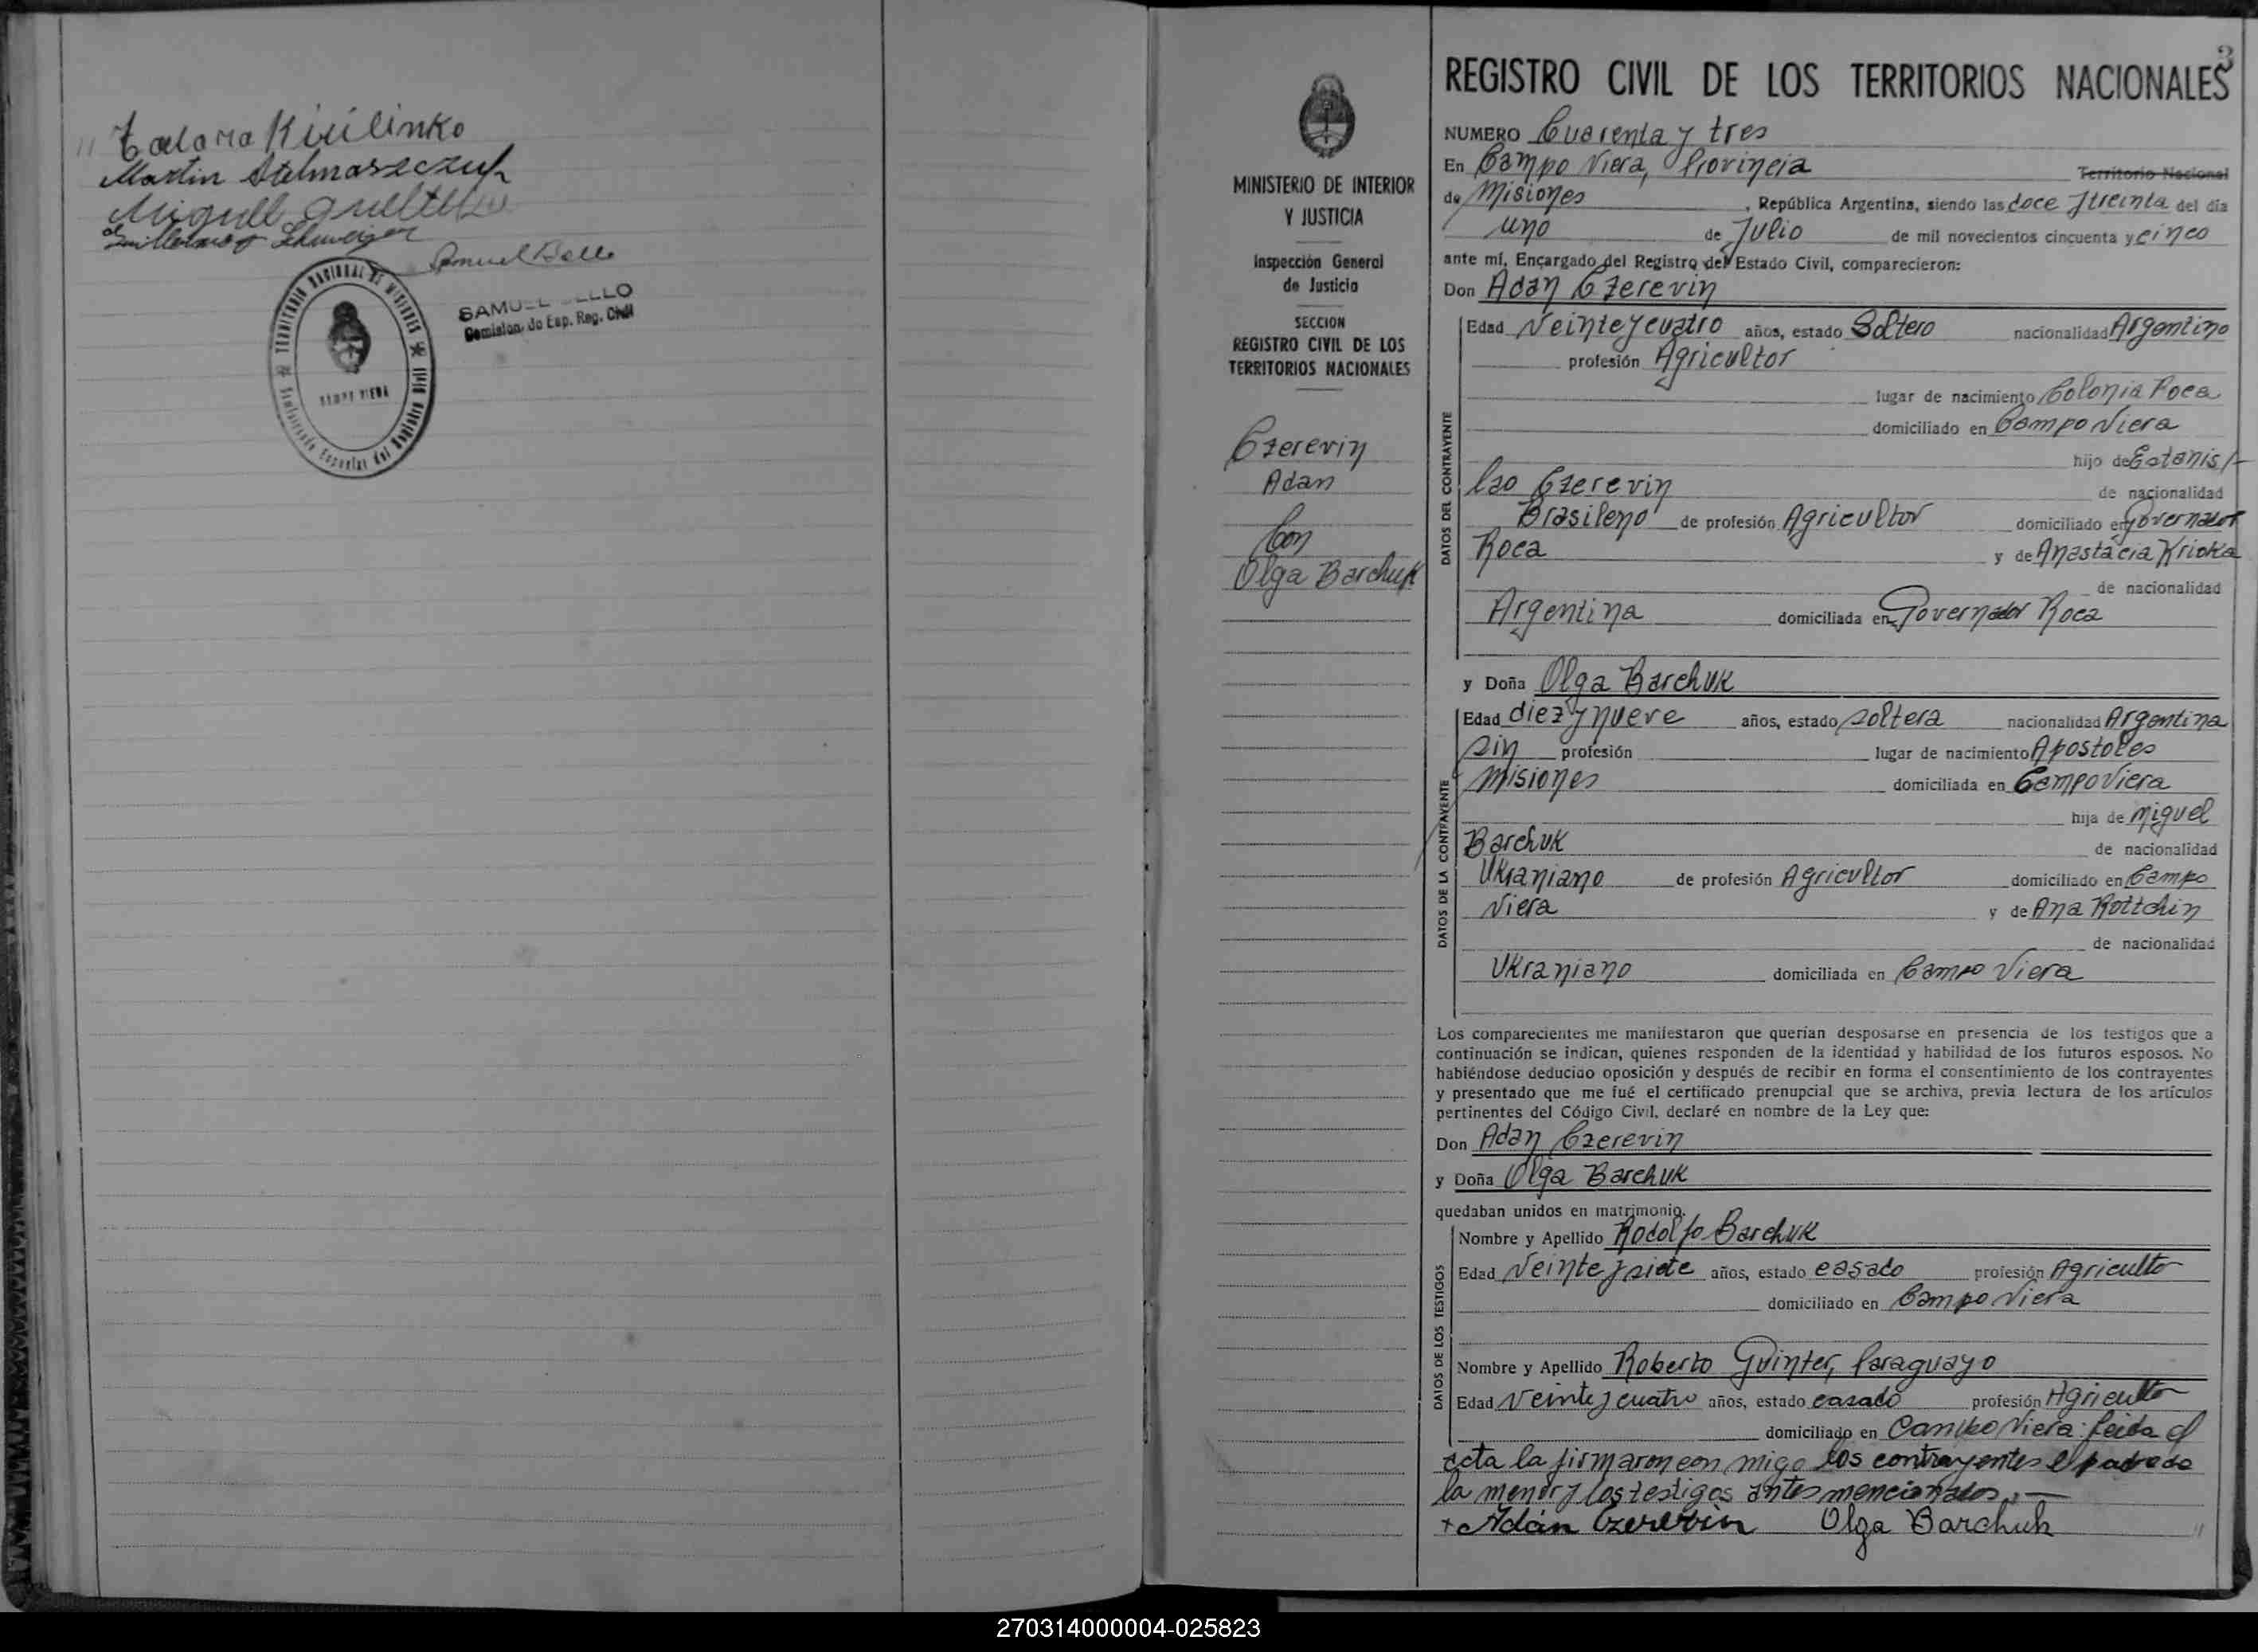 Martin Stalmaszczuk
Miguel
Guillermo Schweizer
Samuel Bello
SAMUEL BELLO
Esp. Reg. Civil
TERRITORIO NACIONAL DE MISIONES
CAMPO VIERA
3
MINISTERIO DE INTERIOR
Y JUSTICIA
Inspección General
de Justicia
SECCION
REGISTRO CIVIL DE LOS
TERRITORIOS NACIONALES
Czerevin
Adan
Con
Olga Barchuk
REGISTRO CIVIL DE LOS TERRITORIOS NACIONALES
NUMERO Cuarenta y tres
En Campo Viera, Provincia Territorio Nacional
de Misiones, República Argentina, siendo las doce y treinta del día
uno de Julio de mil novecientos cincuenta y cinco
ante mí, Encargado del Registro del Estado Civil, comparecieron:
Don Adan Czerevin
DATOS DEL CONTRAYENTE
Edad Veinte y cuatro años, estado Soltero nacionalidad Argentino
profesión Agricultor
lugar de nacimiento Colonia Roca
domiciliado en Campo Viera
hijo de Estanis/-
lao Czerevin de nacionalidad
Brasileno de profesión Agricultor domiciliado en Governador
Roca y de Anastacia Krioka
de nacionalidad
Argentina domiciliada en Governador Roca
y Doña Olga Barchuk
DATOS DE LA CONTRAYENTE
Edad diez y nueve años, estado soltera nacionalidad Argentina
sin profesión lugar de nacimiento Apostoles
Misiones domiciliada en Campo Viera
hija de Miguel
Barchuk de nacionalidad
Ukraniano de profesión Agricultor domiciliado en Campo
Viera y de Ana Rottchin
de nacionalidad
Ukraniano domiciliada en Campo Viera
Los comparecientes me manifestaron que querían desposarse en presencia de los testigos que a
continuación se indican, quienes responden de la identidad y habilidad de los futuros esposos. No
habiéndose deducido oposición y después de recibir en forma el consentimiento de los contrayentes
y presentado que me fué el certificado prenupcial que se archiva, previa lectura de los artículos
pertinentes del Código Civil, declaré en nombre de la Ley que:
Don Adan Czerevin
y Doña Olga Barchuk
quedaban unidos en matrimonio.
DATOS DE LOS TESTIGOS
Nombre y Apellido Rodolfo Barchuk
Edad Veinte y siete años, estado casado profesión Agricultor
domiciliado en Campo Viera
Nombre y Apellido Roberto Guinter, Paraguayo
Edad Veinte y cuatro años, estado casado profesión Agricultor
domiciliado en Campo Viera: leida el
acta la firmaron con migo los contrayentes el padre de
la menor y los testigos antes mencionados.—
+ Adán Czerevin Olga Barchuk "
270314000004-025823